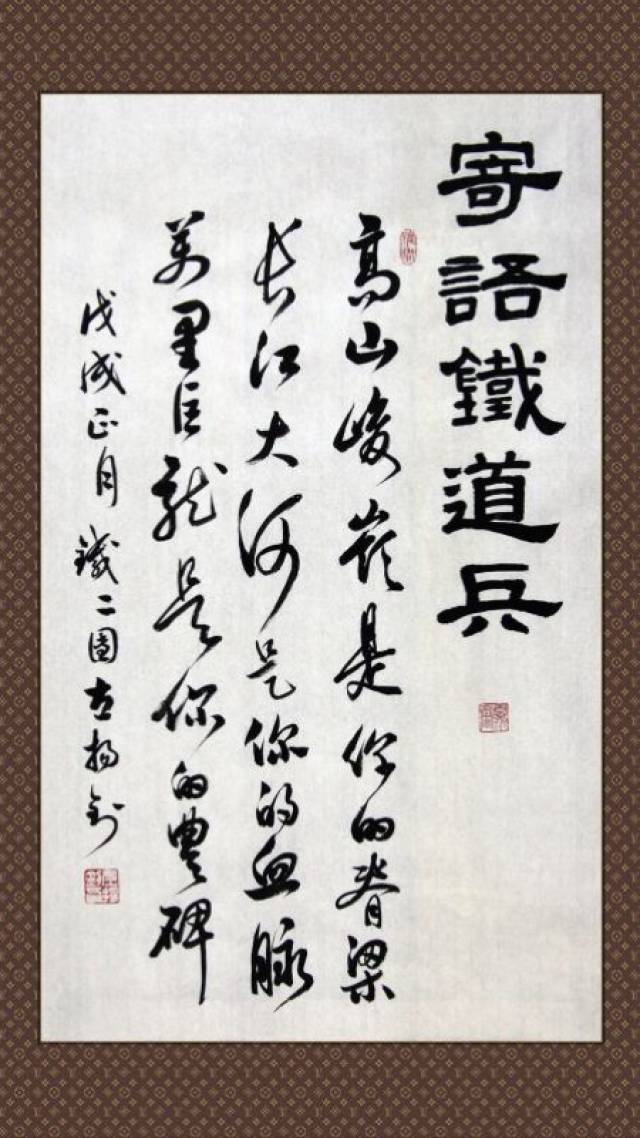 寄語鐵道兵
高山峻嶺是你的脊梁
長江大河是你的血脉
萬里巨龍是你的豐碑
戊戌正月 鐵二團 古揚剑